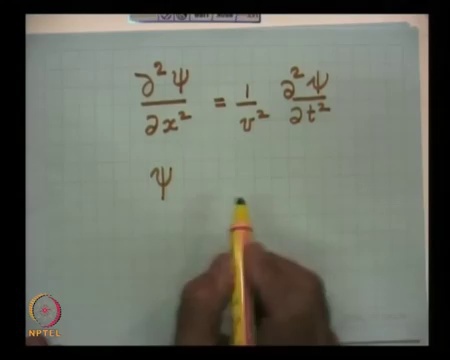 ∂²ψ/∂x² = 1/v² ∂²ψ/∂t²
ψ
NPTEL